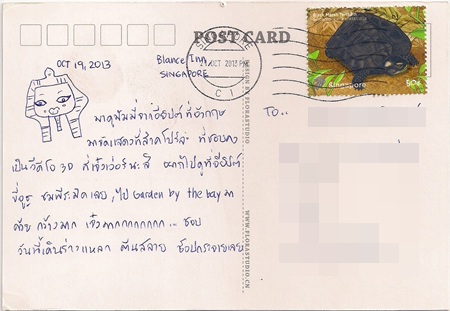 POST CARD
OCT 19, 2013
Blance Inn
SINGAPORE
SINGAPORE
21 OCT 2013 PM
C 1
Black Marsh Terrapin
Singapore
50c
TO..
มาดูมัมมี่จากอียิปต์ที่อังกฤษ
มาจัดแสดงที่สิงคโปร์ล่ะ ที่ชอบคง
เป็นวีดีโอ 3D
ขี่อูฐ ชมพีระมิดเลย, ไป Garden by the bay มา
ด้วย กว้างมาก เจ๋งมากกกกกกกก... ชอบ
วันนี้เดินร่างแหลก ตีนสลาย ช้อปกระจายเลย
DESIGN BY FLORASTUDIO
WWW.FLORASTUDIO.CN